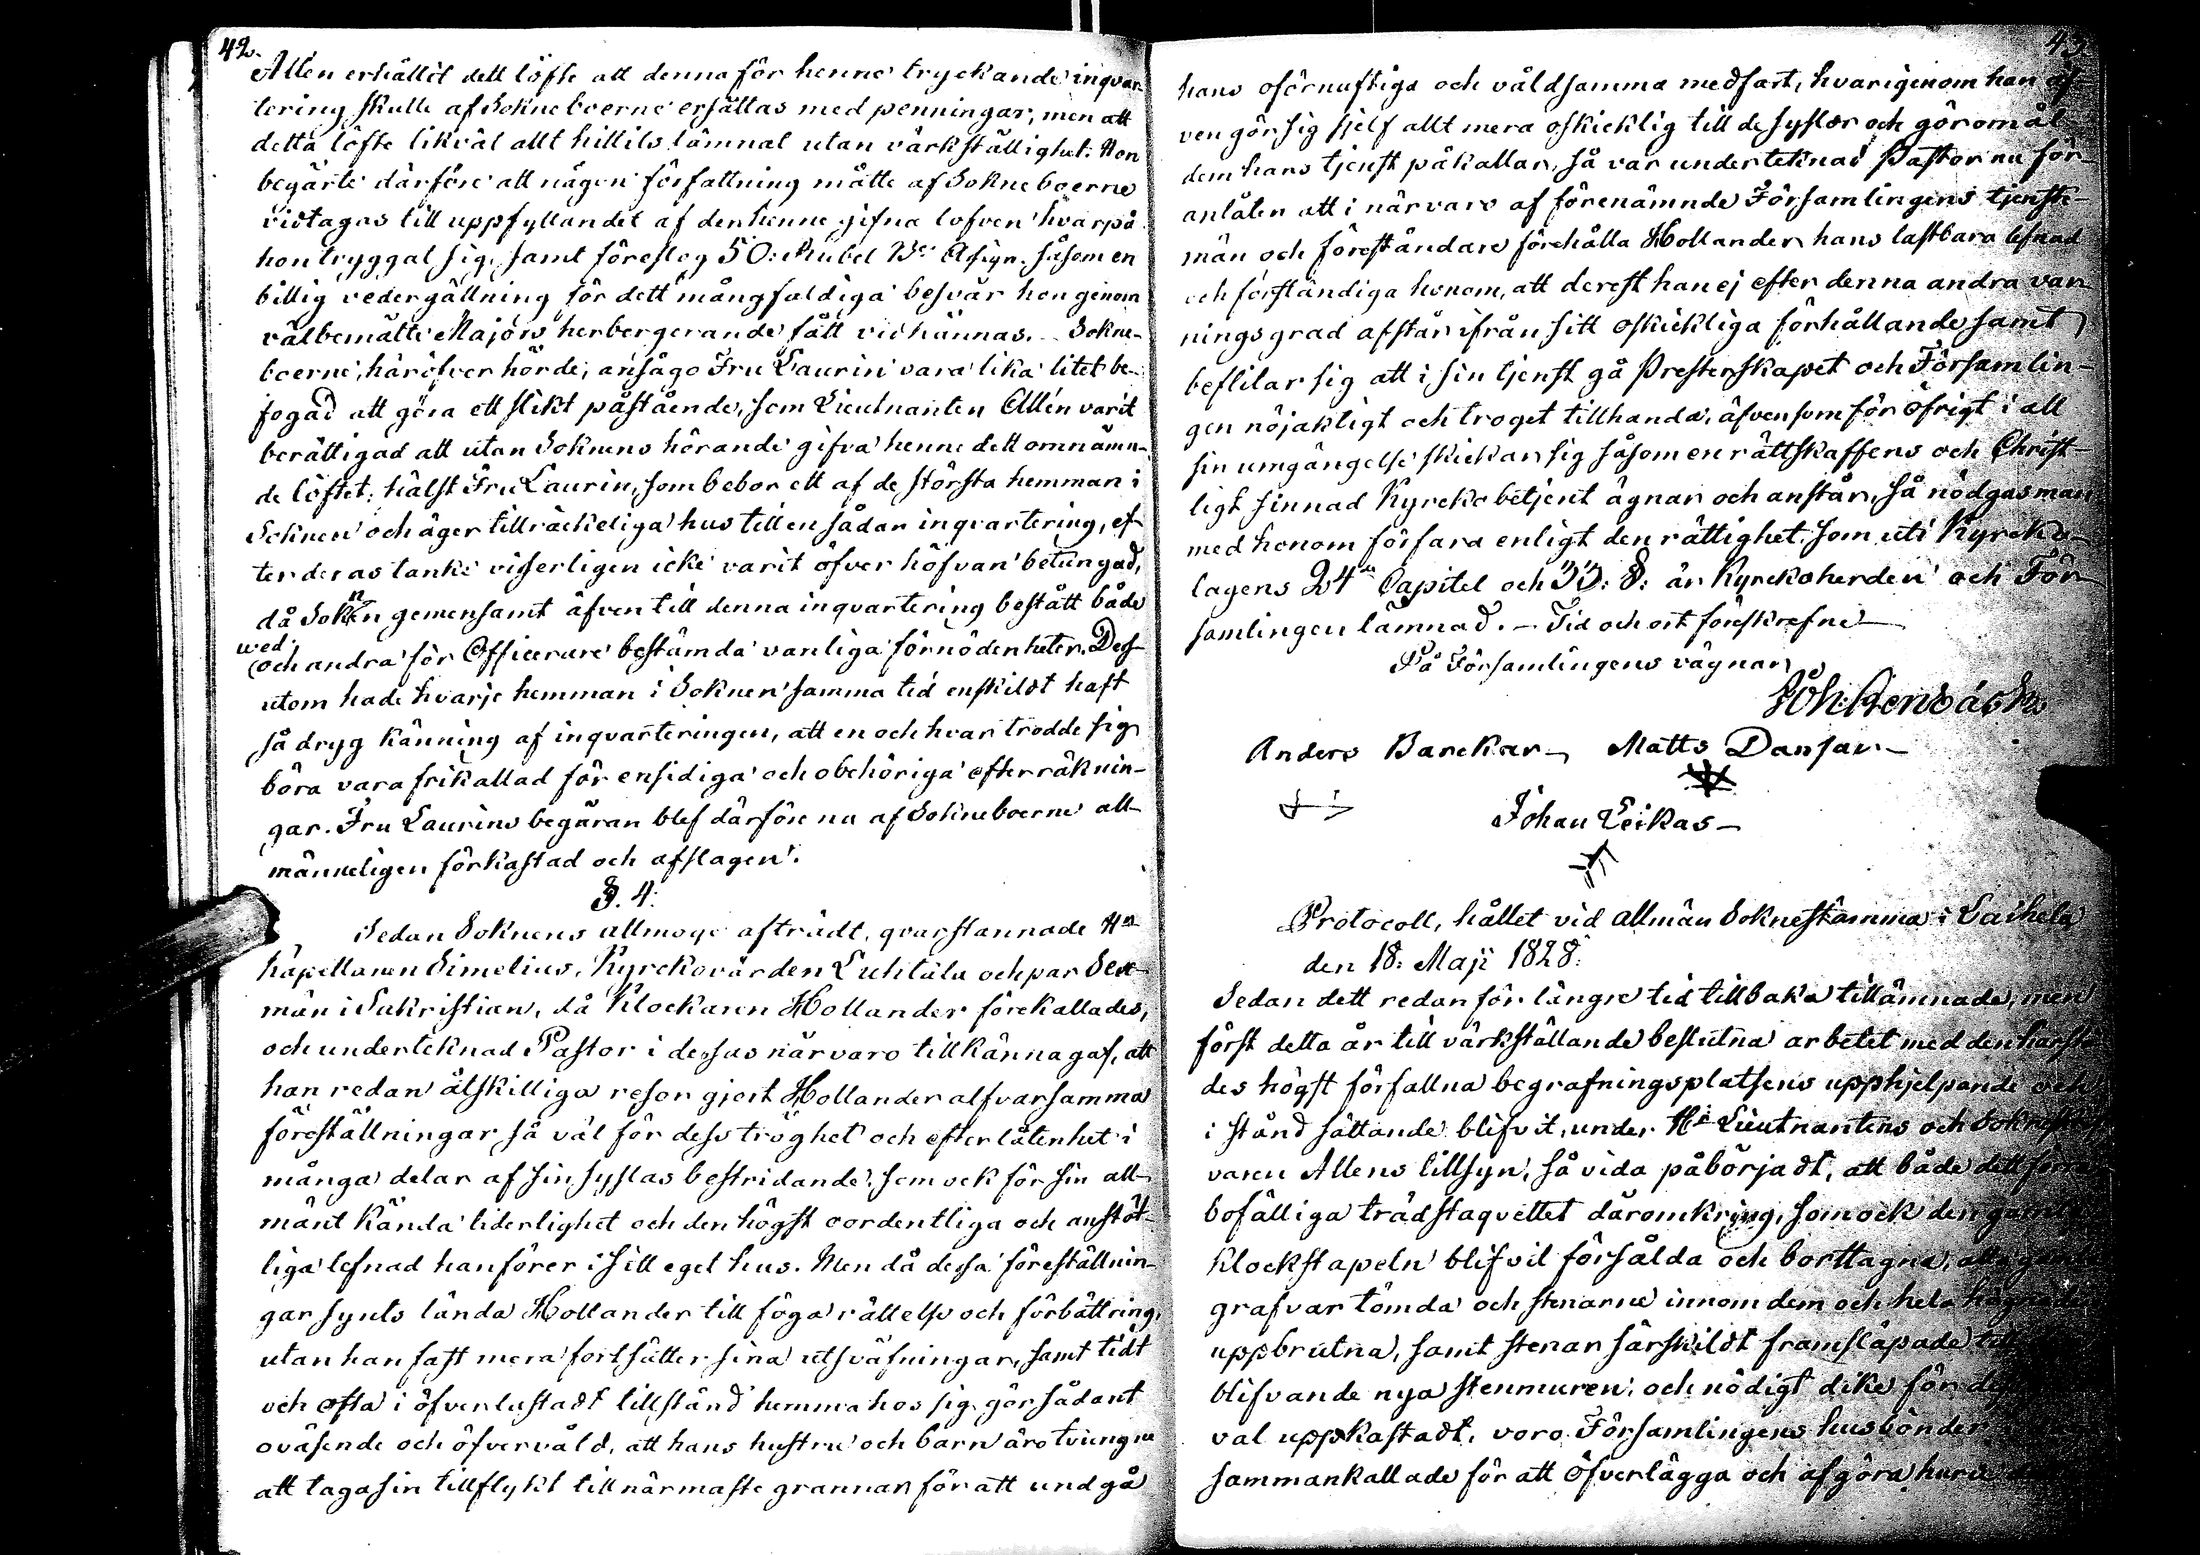 42.
Allén erhållit dett löfte att denna för henne tryckande inqvar-
tering skulle af Sokneboerne ersättas med penningar; men att
detta löfte likväl allt hittils lämnat utan värkställighet. Hon
begärte därföre att någon författning måtte af Sokneboerne
vidtagas till uppfyllandet af den henne gifna lofven hvarpå
hon tryggat sig, samt föreslog 50: Rubel Bco Assign. såsom en
billig vedergällning för dett mångfaldiga besvär hon genom
välbemälte Majors herbergerande fått vidkännas. Sokne-
boerne, häröfver hörde, ansågo Fru Laurin vara lika litet be-
fogad att göra ett slikt påstående, som Lieutnanten Allén varit
berättigad att utan Soknens hörande gifva henne dett omnämn-
de löftet; hälst Fru Laurin, som bebor ett af de största hemman i
Soknen och äger tillräckeliga hus till en sådan inqvartering, ef-
ter deras tanke visserligen icke varit öfver höfvan betungad,
då Soknen gemensamt äfven till denna inqvartering bestått både
wed
och andra för Officerare bestämda vanliga förnödenheter. Dess-
utom hade hvarje hemman i Soknen samma tid enskildt haft
så dryg känning af inqvarteringen, att en och hvar trodde sig
böra vara frikallad för ensidiga och obehöriga efterräknin-
gar. Fru Laurins begäran blef därföre nu af Sokneboerne all-
männeligen förkastad och afslagen.
§. 4.
Sedan Soknens allmoge afträdt, qvarstannade Hr
Kapellanen Simelius, Kyrckovärden Luhtala och par Sex-
män i Sakristian, då Klockaren Hollander förekallades,
och undertecknad Pastor i dessas närvaro tillkännagaf, att
han redan åtskilliga resor gjort Hollander alfvarsamma
föreställningar så väl för dess tröghet och efterlåtenhet i
många delar af sin sysslas bestridande, som ock för sin all-
mänt kända liderlighet och den högst oordentliga och anstöt-
liga lefnad han förer i sitt eget hus. Men då dessa föreställnin-
gar synts lända Hollander till föga rättelse och förbättring,
utan han fast mera fortsätter sina utsväfningar, samt tidt
och ofta i öfverlastadt tillstånd hemma hos sig gör sådant
oväsende och öfvervåld, att hans hustru och barn äro tvungna
att taga sin tillflykt till närmaste grannar för att undgå
43
hans oförnuftiga och våldsamma medfart, hvarigenom han äf-
ven gör sig sjelf allt mera oskicklig till de sysslor och göromål
dem hans tjenst påkallar, så var undertecknad Pastor nu för-
anlåten att i närvaro af förenämnde Församlingens tjenste-
män och föreståndare förehålla Hollander hans lastbara lefnad
och förständiga honom, att derest han ej efter denna andra var-
ningsgrad afstår ifrån sitt oskickliga förhållande samt
beflitar sig att i sin tjenst gå Presterskapet och Församlin-
gen nöjaktigt och troget tillhanda, äfvensom för öfrigt i all
sin umgängelse skickar sig såsom en rättskaffens och Christ-
ligt sinnad Kyrckobetjent ägnar och anstår, så nödgas man
med honom förfara enligt den rättighet, som uti Kyrcko-
lagens 24de Capitel och 33: §: är Kyrckoherden och För-
samlingen lämnad. — Tid och ort förskrefne
På Församlingens vägnar
Anders Banckar Matts Dansar
Johan Leikas
Protocoll, hållet vid allmän Soknestämma i Laihela
den 18: Maji 1828:
Sedan dett redan för längre tid tillbaka tillämnade, men
först detta år till värkställande beslutna arbetet med den härstä-
des högst förfallna begrafningsplatsens upphjelpande och
i stånd sättande blifvit, under Hr Lieutnantens och
varen Allens tillsyn, så vida påbörjadt, att både dett förra
bofälliga trädstaqvettet däromkring, som ock den gamla
Klockstapeln blifvit försålda och borttagna, alla gamla
grafvar tömda och stenarne innom dem och hela
uppbrutna, samt stenar särskildt framsläpade till
blifvande nya stenmuren, och nödigt dike för
val uppkastadt, voro Församlingens husbönder
sammankallade för att öfverlägga och afgöra huru